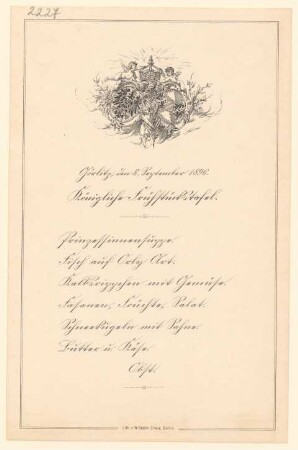 2227
Görlitz, den 8. September 1896.
Königliche Frühstückstafel.
Prinzessinnensuppe.
Fisch auf Orly Art.
Kalbsrippchen mit Gemüse.
Fasanen, Früchte, Salat.
Schneekugeln mit Sahne.
Butter u. Käse.
Obst.